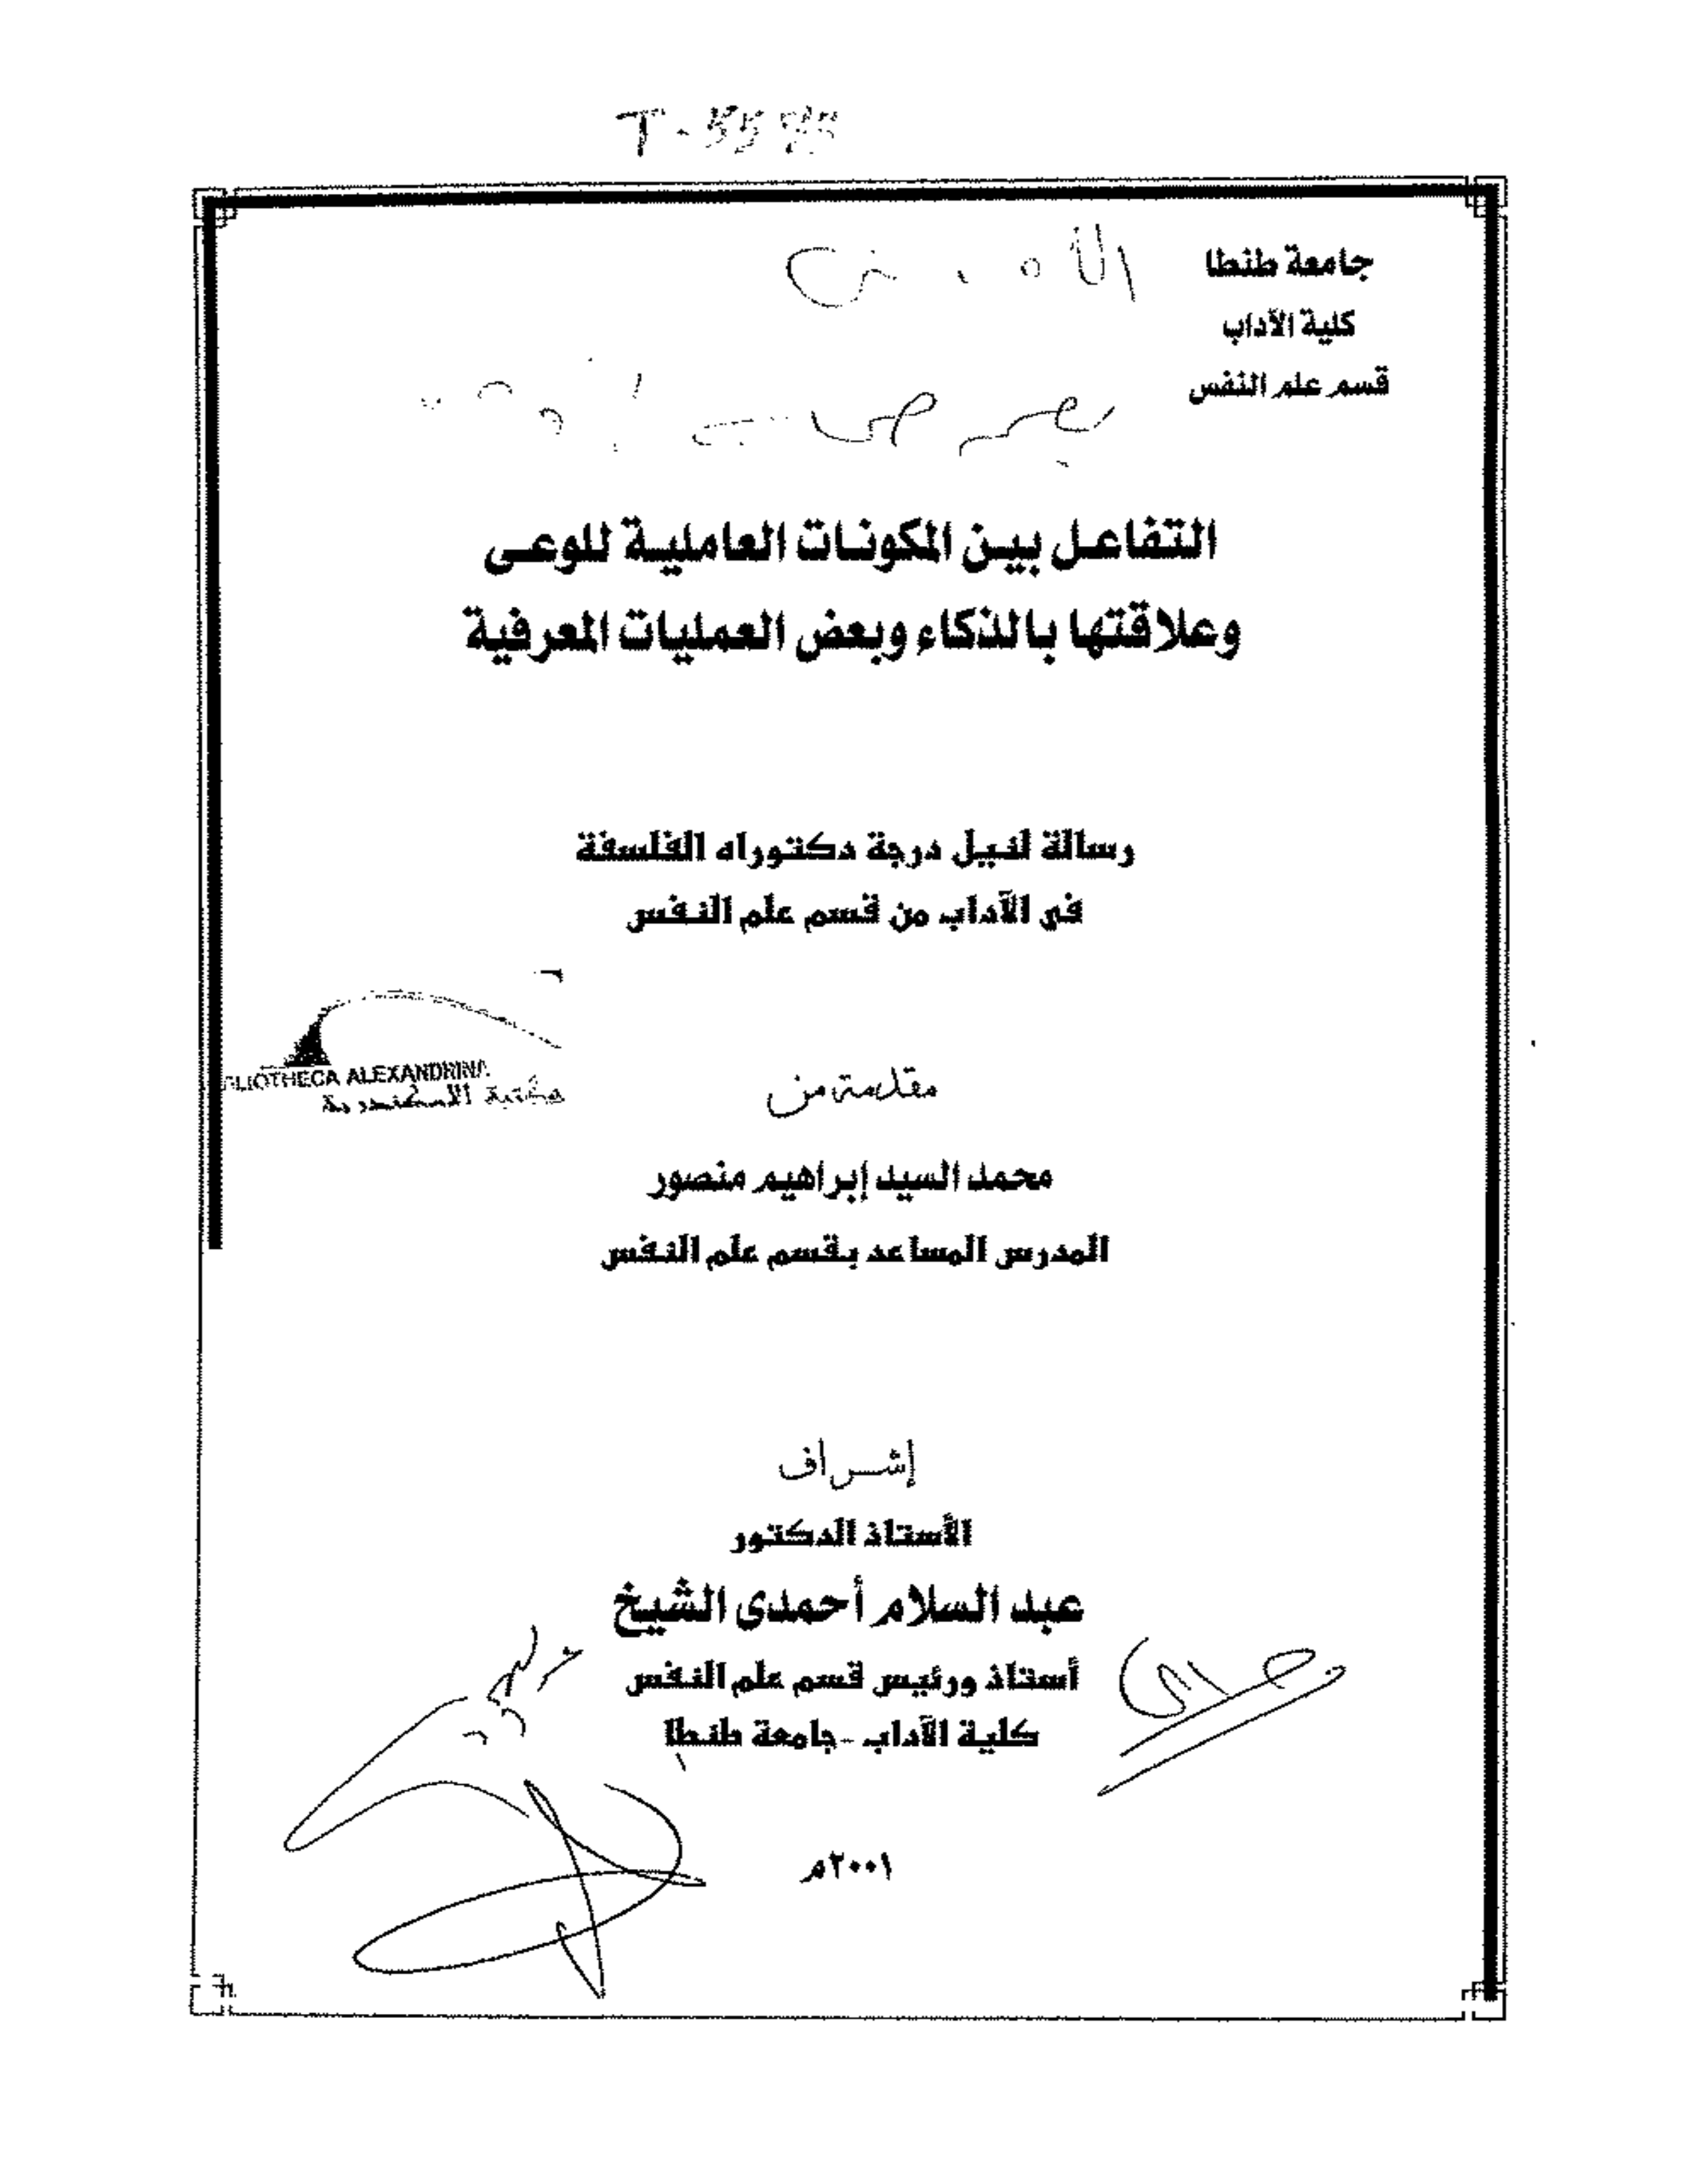 جامعة طنطا
كلية الآداب
قسم علم النفس
التفاعل بين المكونات العاملية للوعى
وعلاقتها بالذكاء وبعض العمليات المعرفية
رسالة لنيل درجة دكتوراه الفلسفة
فى الآداب من قسم علم النفس
BLIOTHECA ALEXANDRINA
مكتبة الاسكندرية
مقدمة من
محمد السيد إبراهيم منصور
المدرس المساعد بقسم علم النفس
إشراف
الأستاذ الدكتور
عبد السلام أحمدى الشيخ
أستاذ ورئيس قسم علم النفس
كلية الآداب - جامعة طنطا
٢٠٠١م